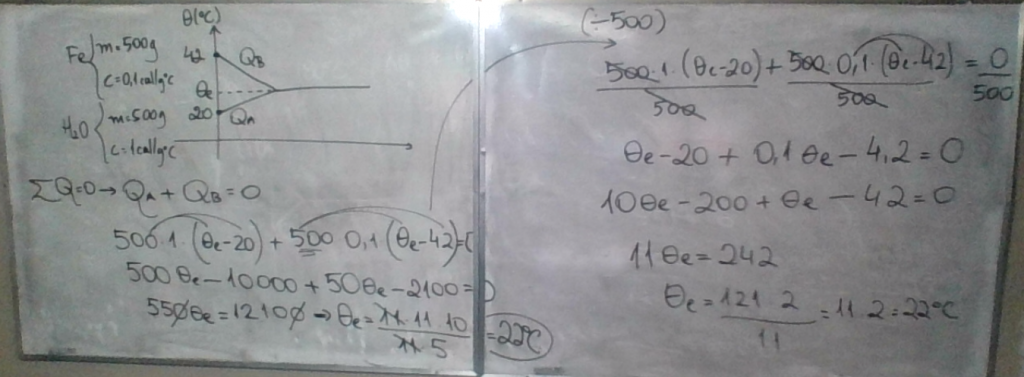 θ(°C)
Fe { m=500g
c=0,1cal/g°C
H₂O { m=500g
c=1cal/g°C
42 QB
θe
20 QA
ΣQ=0→QA+QB=0
500.1.(θe-20)+500 0,1(θe-42)=0
500θe-10000+50θe-2100=0
550θe=12100→θe=11.11 10/11 5=22°C
(÷500)
500.1.(θe-20)/500+500.0,1.(θe-42)/500=0/500
θe-20+0,1θe-4,2=0
10θe-200+θe-42=0
11θe=242
θe=121.2/11=11.2=22°C